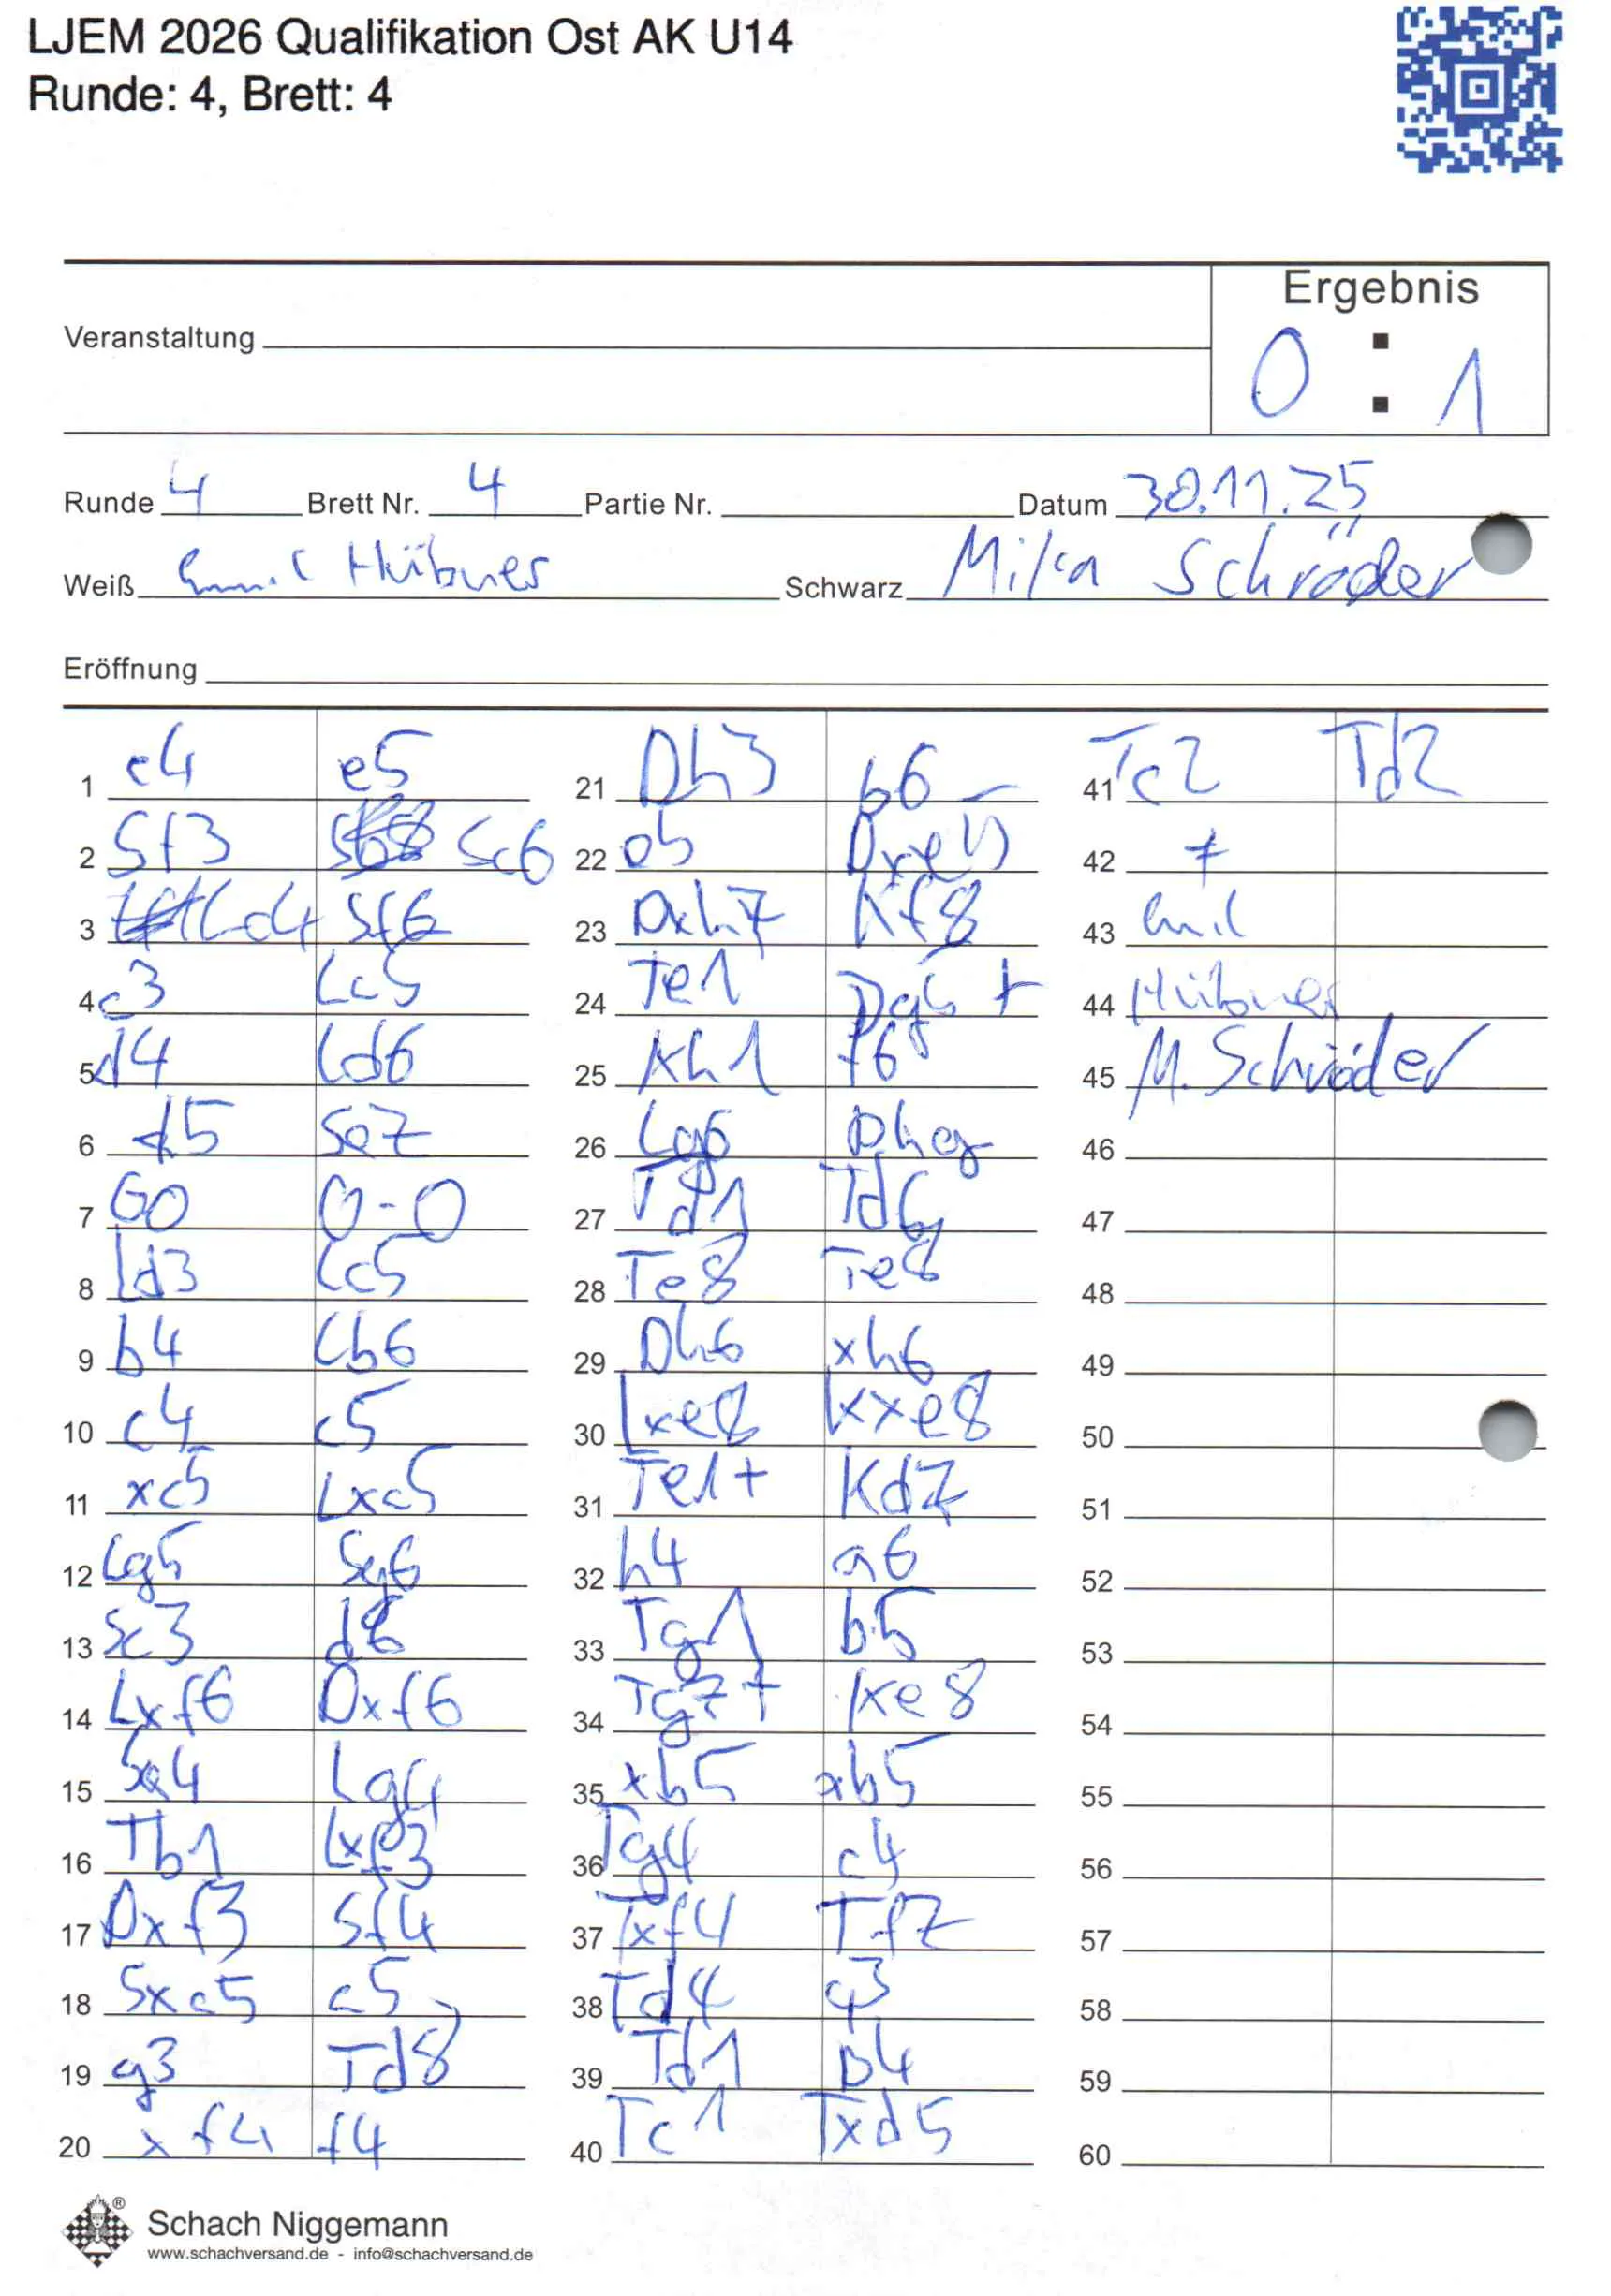 LJEM 2026 Qualifikation Ost AK U14
Runde: 4, Brett: 4
Ergebnis
0 : 1
Veranstaltung
Runde 4 Brett Nr. 4 Partie Nr. Datum 30.11.25
Weiß Emil Hübner Schwarz Mika Schröder
Eröffnung
1 e4 e5
2 Sf3 Sc6
3 Lc4 Sf6
4 c3 Lc5
5 d4 Ld6
6 d5 Se7
7 GO 0-0
8 Ld3 Lc5
9 b4 Lb6
10 c4 c5
11 xc5 Lxc5
12 Lg5 Sg6
13 Sc3 d6
14 Lxf6 Dxf6
15 Sa4 Lg4
16 Tb1 Lxf3
17 Dxf3 Sf4
18 Sxc5 c5
19 g3 Td8
20 xf4 f4
21 Dh3 b6
22 e5 Dxe5
23 Dxh7 Kf8
24 Te1 Dg5 +
25 Kh1 f6
26 Lg6
27 Td1 Td6
28 Te8 Te8
29 Dh6 xh6
30 Lxe8 Kxe8
31 Te1+ Kd7
32 h4 a6
33 Tg1 b5
34 Tg7+ Ke8
35 xb5 ab5
36 Tg4 c4
37 Txf4 Tf7
38 Td4 c3
39 Td1 b4
40 Tc1 Txd5
41 Tc2 Td2
42
43 Emil
44 Hübner
45 M. Schröder
46
47
48
49
50
51
52
53
54
55
56
57
58
59
60
Schach Niggemann
www.schachversand.de - info@schachversand.de